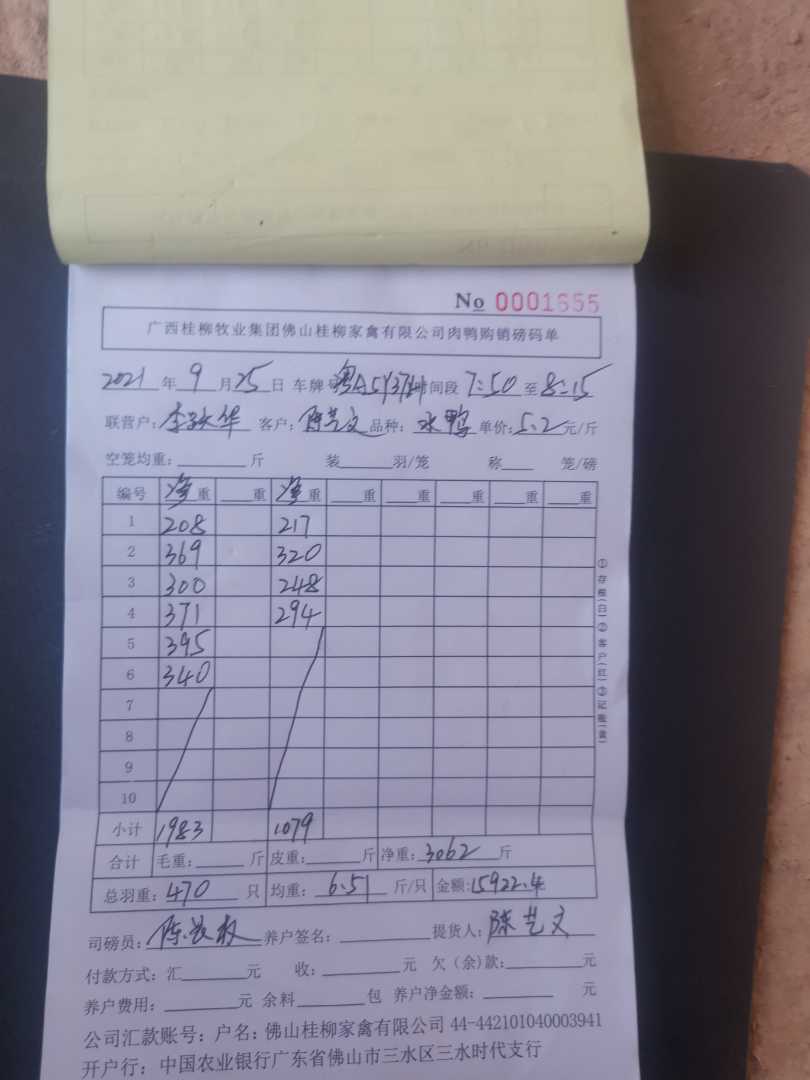 No 0001655
广西桂柳牧业集团佛山桂柳家禽有限公司肉鸭购销磅码单
2021年9月25日 车牌号 粤A5Y37 时间段 7:50至8:15
联营户: 李 华 客户: 陈艺文 品种: 水鸭 单价: 5.2元/斤
空笼均重:____斤 装____羽/笼 称____笼/磅
编号 净重 ____重 净重 ____重 ____重 ____重 ____重 ____重
1 208 217
2 369 320
3 300 248
4 371 294
5 395
6 340
7
8
9
10
小计 1983 1079
合计 毛重:____斤 皮重:____斤 净重: 3062斤
总羽重: 470只 均重: 6.51斤/只 金额: 15922.4
司磅员: 陈 养户签名:____ 提货人: 陈艺文
付款方式: 汇____元 收:____元 欠（余)款:____元
养户费用:____元 余料____包 养户净金额:____元
公司汇款账号: 户名: 佛山桂柳家禽有限公司 44-442101040003941
开户行: 中国农业银行广东省佛山市三水区三水时代支行
①存根(白)②客户(红)③记账(黄)